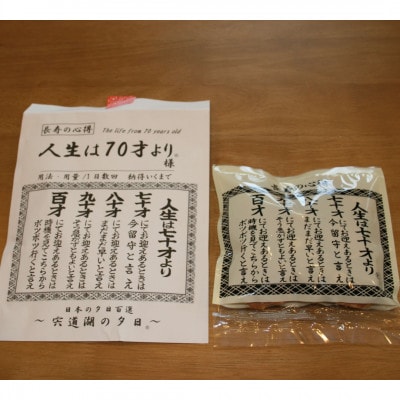 長寿の心得
The life from 70 years old
人生は70才より。
様
用法・用量/1日数回 納得いくまで
人生は七十才より
七才
にてお迎えあるときは
今留守と言え
八才
にてお迎えあるときは
まだまだ早いと言え
九才
にてお迎えあるときは
そう急がずともよいと言え
百才
にてお迎えあるときは
時機を見てこちらから
ボツボツ行くと言え
日本の夕日百選
～宍道湖の夕日。～
長寿の心得
人生は七十才より
七才
にてお迎えあるときは
今留守と言え
にてお迎えあるときは
まだまだ早いと言え
にてお迎えあるときは
そう急がずともよいと言え
百才
にてお迎えあるときは
時機を見てこちらから
ボツボツ行くと言え